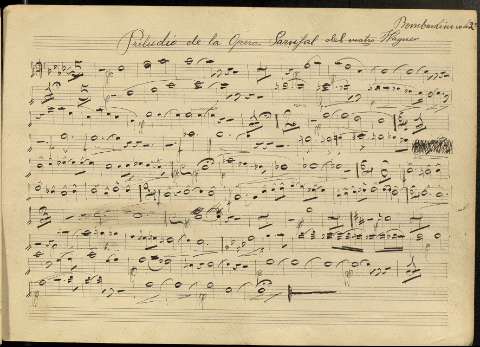 Bombardino en do 2º
Preludio de la Opera Parsifal del mstro Wagner